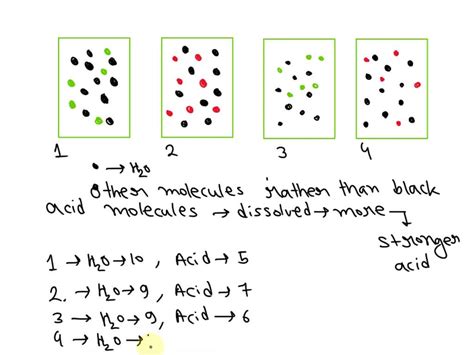 1 2 3 4
• → H₂O
Other molecules rather than black
acid molecules → dissolved → more → stronger acid
1 → H₂O → 10, Acid → 5
2. → H₂O → 9, Acid → 7
3 → H₂O → 9, Acid → 6
4 → H₂O →